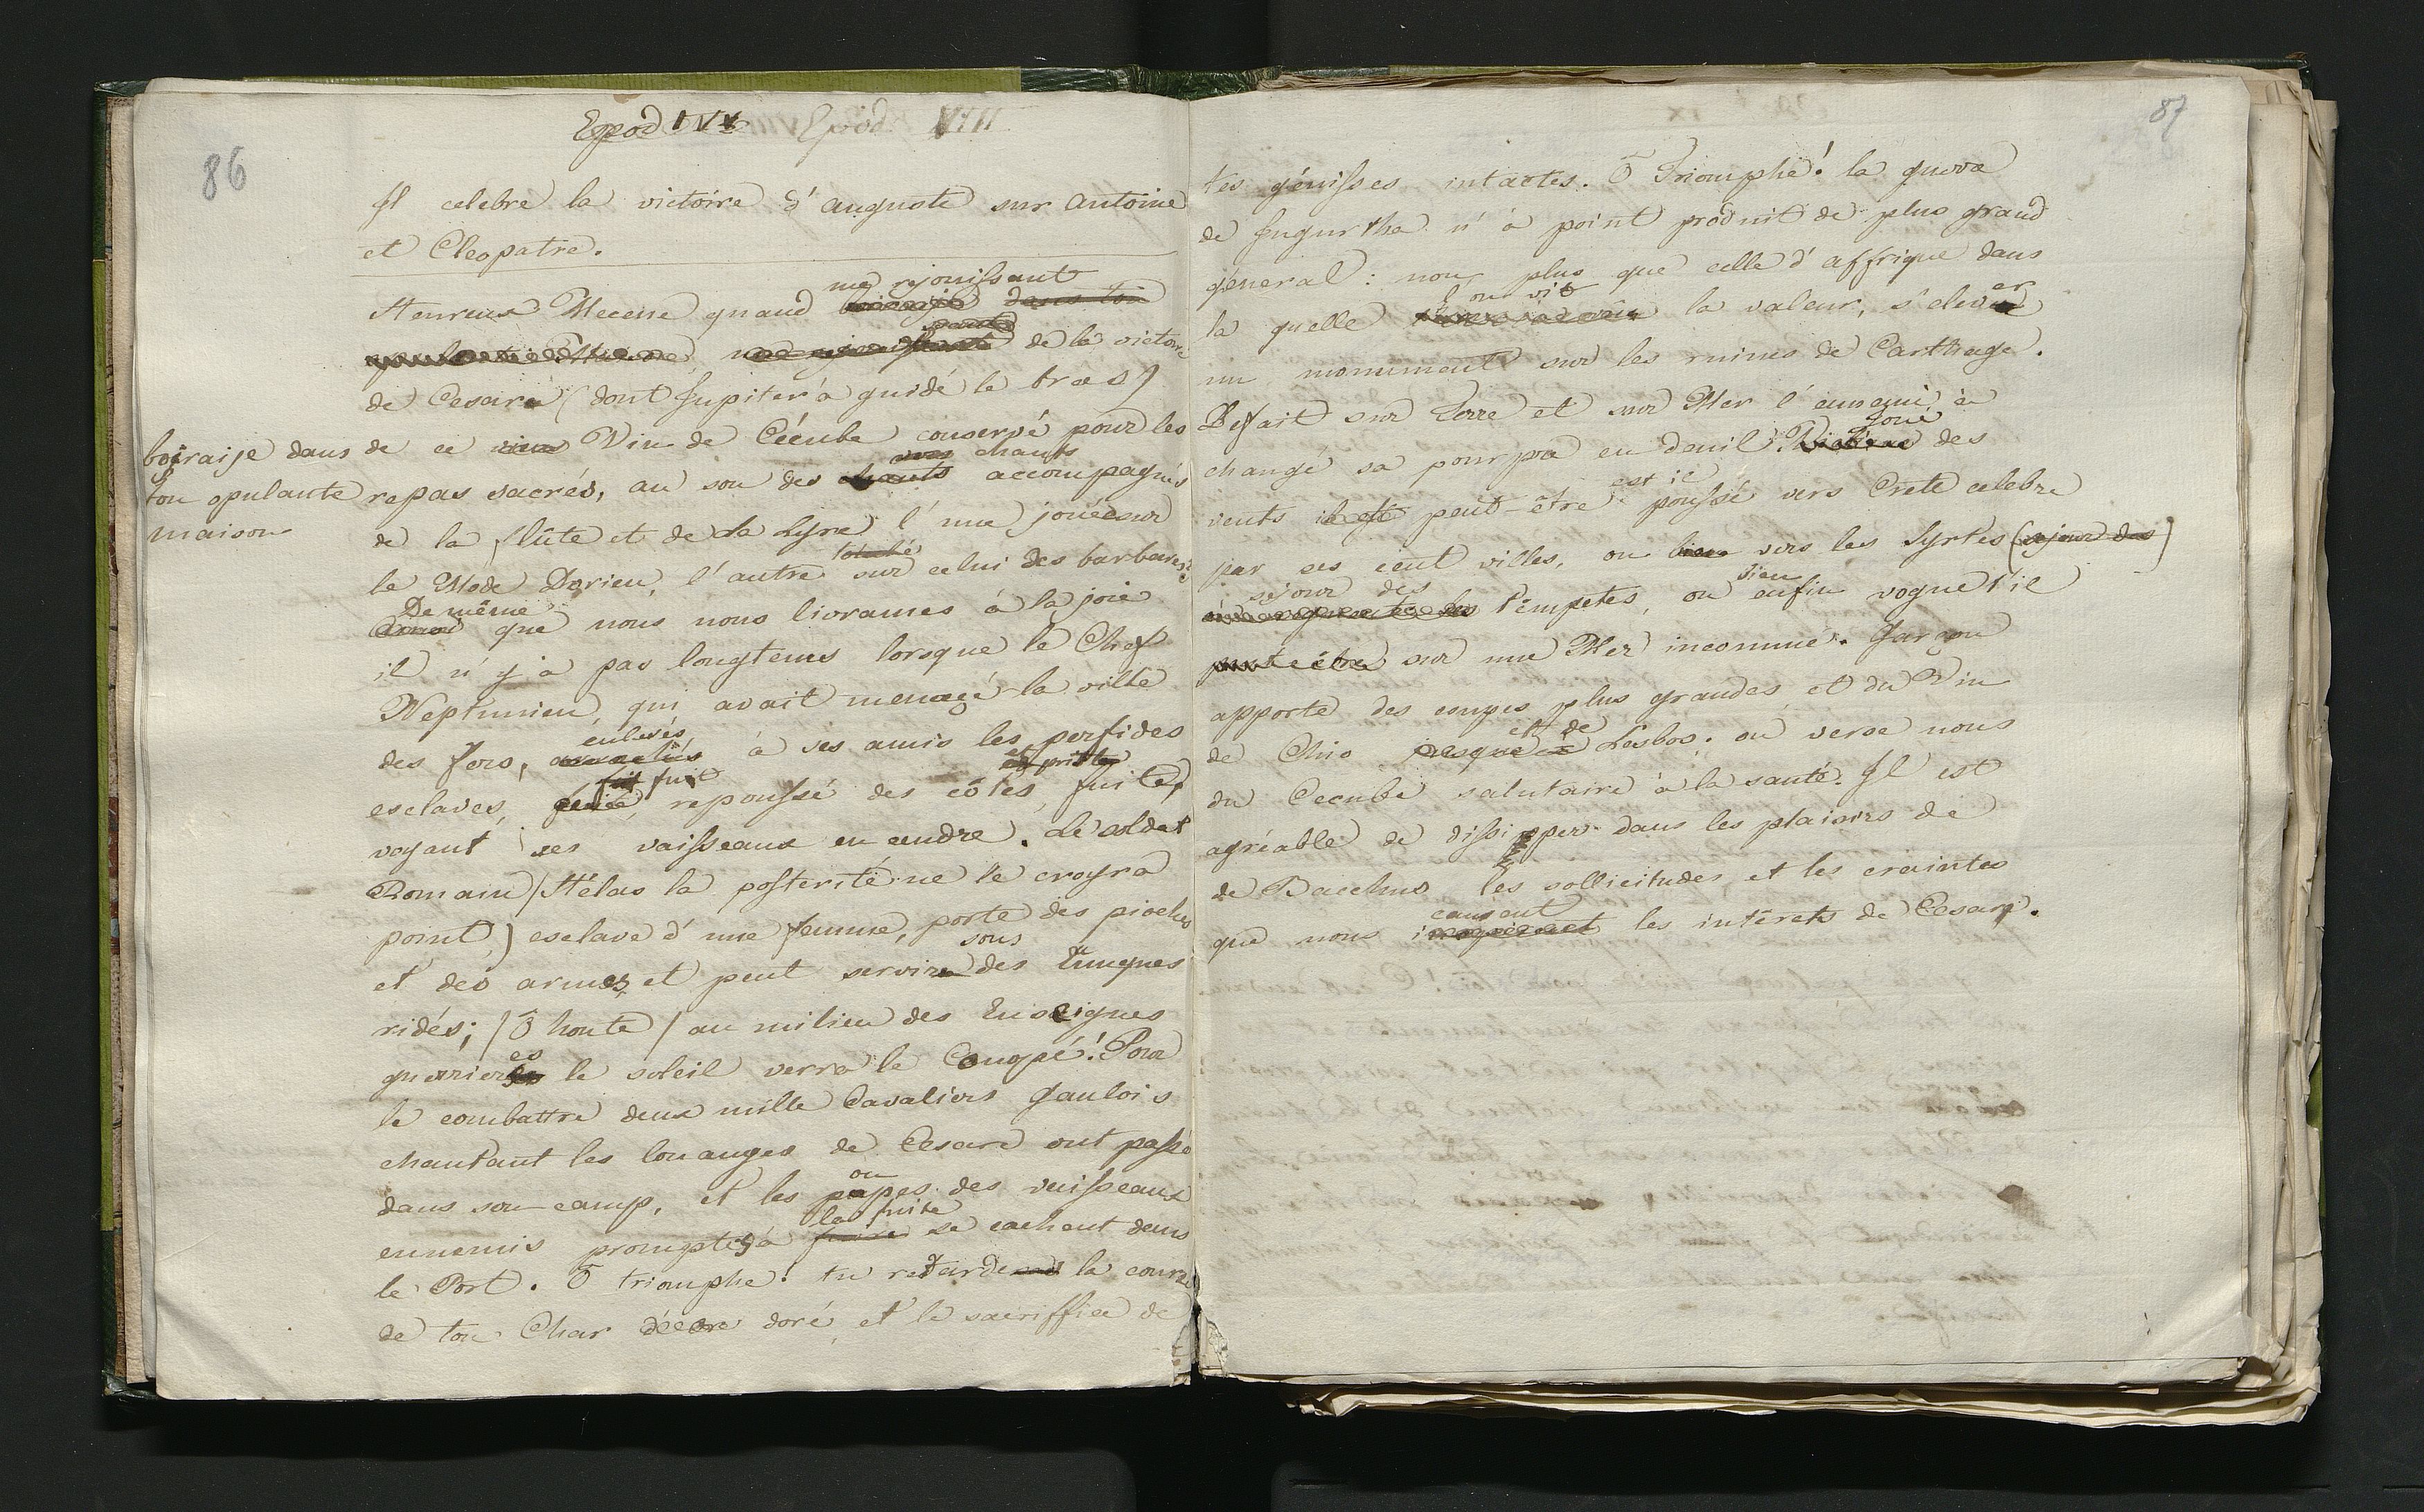 86
Epod IV Epod VIII
Il celebre la victoire d'auguste sur antoine
et Cleopatre.
me rejouissant
Heureux Mecene quand dans ton
opulente me rejouissant de la victoire
de Cesar (dont Jupiter à guidé le bras)
boiraije dans
ton opulante
maison
de ce Vin de Cécube conservé pour les
chants
repas sacrés, au son des chants accompagnés
de la flûte et de La Lyre l'une jouée sur
touché
le Mode Dorien, l'autre sur celui des barbares?
De même
que nous nous livrames à la joie
il n'y à pas longtems lorsque le Chef
Neptunien, qui avait menacé la ville
enlevés
des fers, à ses amis les perfides
fuit
esclaves, repoussé des côtes, fuite,
voyant ses vaisseaux en cendre. Le soldat
Romain (Hélas la posterité ne le croyra
point) esclave d'une femme, porte des pioches
sous
et des armes, et peut servir des Eunuques
ridés; (Ô honte) au milieu des Enseignes
es
guerrieres le soleil verra le Conopé! Pour
le combattre deux mille Cavaliers Gaulois
chantant les louanges de Cesare ont passé
ou
dans son camp, et les papes des vaisseaux
la fuite
ennemis promptes à fuire se cachent dans
le Port. Ô triomphe! tu retarde la course
de ton Char doré et le sacriffice de
87
tes génisses intactes. Ô Triomphe! la guerre
de Jugurtha n'à point produit de plus grand
géneral: non plus que celle d'affrique dans
l'on vit er
la quelle la valeur, s'elever
un monument sur les ruines de Carthage.
Defait sur Terre et sur Mer l'ennemi à
Joué
changé sa pourpre en deuil. des
est il
vents il est peut-être poussé vers Crete celebre
par ses cent villes, ou bien vers les Syrtes (sejour des)
sejour des bien
Tempetes, ou enfin vogue t'il
peut être sur une Mer inconnue. Garçon
apporte des coupes plus grandes et du Vin
et de
de Chio Lesbos: ou verse nous
du Cecube salutaire à la santé. Il est
agréable de dissipper dans les plaisirs de
de Bacchus les sollicitudes, et les craintes
causent
que nous les intérets de Cesar.